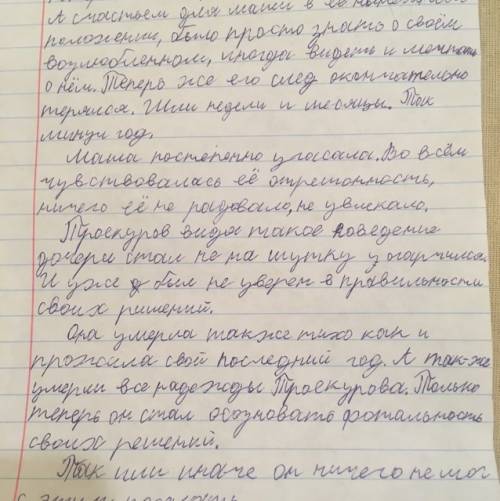 А счастьем для Маши в её нынешнем
положении, было просто знать о своём
возлюбленном, иногда видеть и мечтать
о нём. Теперь же его след окончательно
терялся. Шли недели и месяцы. Так
минул год.
Маша постепенно угасала. Во всём
чувствовалась её отрешонность,
ничего её не радовало, не увлекало.
Троекуров видя такое поведение
дочери стал не на шутку огорчился.
И уже был не уверен в правильности
своих решений.
Она умерла также тихо как и
прожила свой последний год. А так-же
умерли все надежды Троекурова. Только
теперь он стал осозновать фатальность
своих решений.
Так или иначе он ничего не мог
с этим поделать.